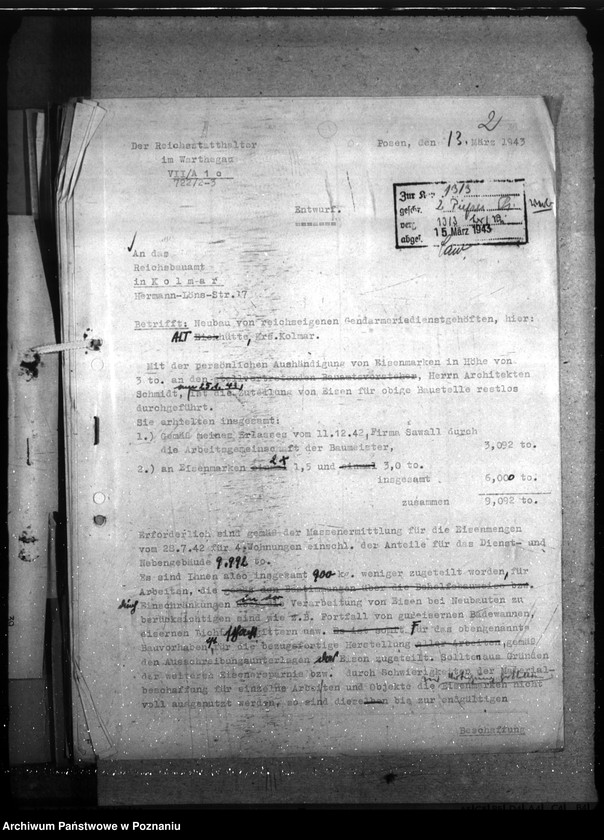 2
Der Reichsstatthalter
im Warthegau
VII/A 1 o
722/2-3
Posen, den 13. März 1943
Entwurf.
Zur K 13/3
geschr.
verg. 13/3
abges. 15. März 1943
An das
Reichsbauamt
in Kolmar
Hermann-Löns-Str.17
Betrifft: Neubau von reichseigenen Gendarmeriedienstgehöften, hier:
Alt hütte, Krs.Kolmar.
Mit der persönlichen Aushändigung von Eisenmarken in Höhe von
3 to. an den stellvertretenden Bauamtsvorsteher, Herrn Architekten
Schmidt, ist die Zuteilung von Eisen für obige Baustelle restlos
durchgeführt.
Sie erhielten insgesamt:
1.) Gemäß meinen Erlasses vom 11.12.42, Firma Sawall durch
die Arbeitsgemeinschaft der Baumeister, 3,092 to.
2.) an Eisenmarken 2 x 1,5 und 3,0 to.
insgesamt 6,000 to.
zusammen 9,092 to.
Erforderlich sind gemäß der Massenermittlung für die Eisenmengen
vom 28.7.42 für 4 Wohnungen einschl. der Anteile für das Dienst- und
Nebengebäude 9.992 to.
Es sind Ihnen also insgesamt 900 kg. weniger zugeteilt worden, für
Arbeiten, die
durch Einschränkungen in der Verarbeitung von Eisen bei Neubauten zu
berücksichtigen sind wie z.B. Fortfall von gußeisernen Badewannen,
eisernen gittern usw. Es ist somit Für das obengenannte
Bauvorhaben, für die bezugsfertige Herstellung aller Arbeiten, gemäß
den Ausschreibungsunterlagen Eisen zugeteilt. Sollten aus Gründen
der weiteren Eisenersparnis bzw. durch Schwierigkeiten der Material-
beschaffung für einzelne Arbeiten und Objekte die Eisenmarken nicht
voll ausgenutzt werden, so sind dieselben bis zur endgültigen
Beschaffung
Archiwum Państwowe w Poznaniu